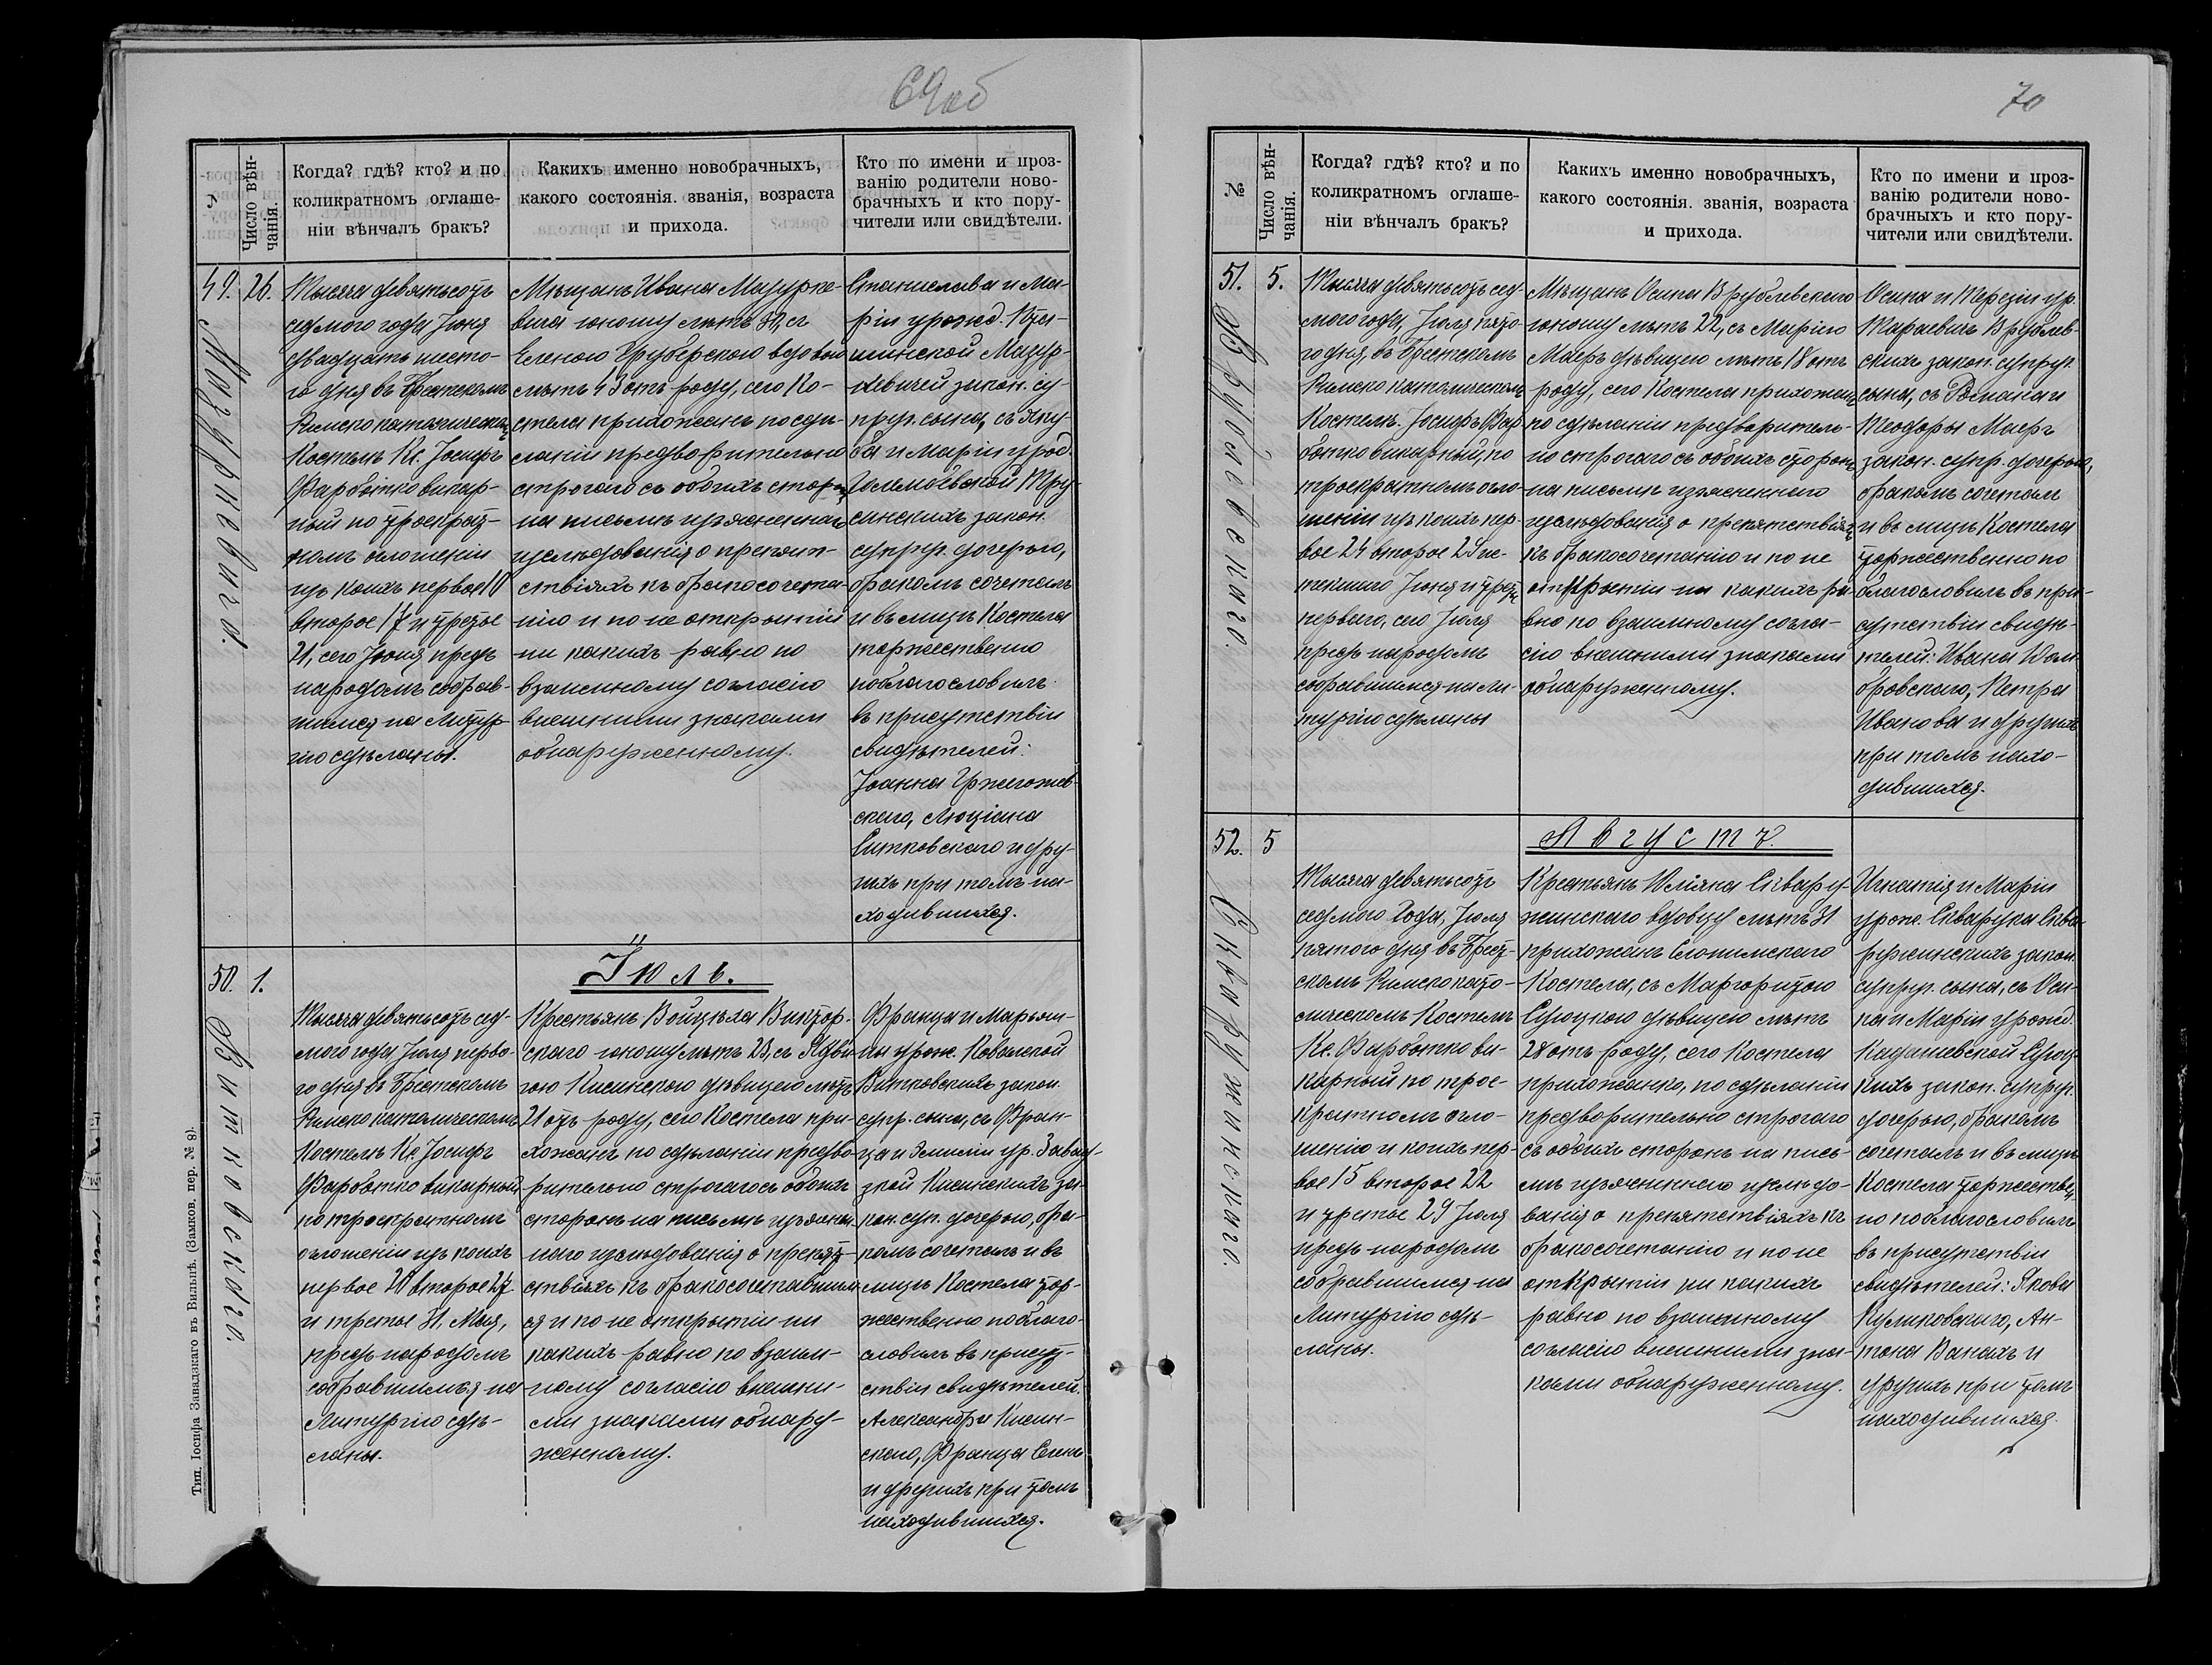 69об
№
Число вѣн-
чанія.
Когда? гдѣ? кто? и по
коликратномъ оглаше-
ніи вѣнчалъ бракъ?
Какихъ именно новобрачныхъ,
какого состоянія. званія, возраста
и прихода.
Кто по имени и проз-
ванію родители ново-
брачныхъ и кто пору-
чители или свидѣтели.
49.
26.
Мазуркевича.
Тысяча девятьсотъ
седмого года Іюня
двадцать шесто-
го дня въ Брестскомъ
Римско католическомъ
Костелѣ Кс. Іосифъ
Фарботко викар-
ный по троекрат-
номъ оглошеніи
изъ коихъ первое 10
второе 17 и третое
21, сего Іюня предъ
народомъ собрав-
шимся на Литур-
гію сдѣланы.
Мѣщанъ Ивана Мазурке-
вича юношу лѣтъ 31, съ
Еленою Груберскою вдовой
лѣтъ 43 отъ роду, сего Ко-
стела прихожанъ по сдѣ-
ланіи предворительно
строгаго съ обоихъ сторонъ
на письмѣ изъясненнаго
изслѣдованія о препят-
ствіяхъ къ бракосочета-
нію и по не открытіи
ни какихъ равно по
взаимному согласію
внешними знаками
обнаруженному.
Станислава и Ма-
ріи урожд.
Мазур-
кевичей закон. су-
пруг. сына, съ Яку-
ба и Маріи урод.
синскихъ закон.
супруг. дочерью,
бракомъ сочеталъ
и въ лицѣ Костела
торжественно
поблагословилъ
въ присутствіи
свидѣтелей:
Іоанна Гржегожев-
скаго, Люціана
Ситковскаго и дру-
гихъ при томъ на-
ходившихся.
Іюль.
50.
1.
Витковскаго.
Тысяча девятьсотъ сед-
мого года Іюля перво-
го дня въ Брестскомъ
Римско католическомъ
Костелѣ Кс. Іосифъ
Фарботко викарный
по троекратномъ
оглошеніи изъ коихъ
первое 20 второе 27
и третье 31, Мая,
предъ народомъ
собравшимся на
Литургію сдѣ-
ланы.
Крестьянъ Войцѣха Виктор-
скаго юношу лѣтъ 23, съ Ядви-
гою Кисинскою дѣвицею лѣтъ
21 отъ роду, сего Костела при-
хожанъ по сдѣланіи предво-
рительно строгаго съ обоихъ
сторонъ на письмѣ изъяснен-
наго изслѣдованія о препят-
ствіяхъ къ бракосочетавшим-
ся и по не открытіи ни
какихъ равно по взаим-
ному согласію внешни-
ми знаками обнару-
женному.
Франца и Марьян-
ны урож. Ковальской
Витковскихъ закон.
супр. сына, съ Фран-
ца и Эмиліи ур. Завад-
зкой Кисинскихъ за-
кон. суп. дочерью, бра-
комъ сочеталъ и въ
лицѣ Костела тор-
жественно поблаго-
словилъ въ присут-
ствіи свидѣтелей.
Александра Кисин-
скаго, Франца
и другихъ при томъ
находившихся.
Тип. Іосифа Завадзкаго въ Вильнѣ. (Замков. пер. № 9).
70
№
Число вѣн-
чанія.
Когда? гдѣ? кто? и по
коликратномъ оглаше-
ніи вѣнчалъ бракъ?
Какихъ именно новобрачныхъ,
какого состоянія. званія, возраста
и прихода.
Кто по имени и проз-
ванію родители ново-
брачныхъ и кто пору-
чители или свидѣтели.
51.
5.
Врублевскаго.
Тысяча девятьсотъ сед-
мого года, Іюля пято-
го дня, въ Брестскомъ
Римско католическомъ
Костелѣ. Іосифъ Фар-
ботко викарный, по
троекратномъ огло-
шеніи изъ коихъ пер-
вое 24 второе 29 ис-
текшаго Іюня и трет.
перваго, сего Іюля
предъ народомъ
собравшимся на Ли-
тургію сдѣланы
Мѣщанъ Осипа Врублевскаго
юношу лѣтъ 22, съ Маріею
Маеръ дѣвицею лѣтъ 18 отъ
роду, сего Костела прихожанъ
по сдѣланіи предваритель-
но строгаго съ обоихъ сторонъ
на письмѣ изъясненнаго
изслѣдованія о препятствіяхъ
къ бракосочетанію и по не
открытіи ни какихъ ра-
вно по взаимному согла-
сію внешними знаками
обнаруженному.
Осипа и Терезіи ур.
Тараевичъ Врублев-
скихъ закон. супруг.
сына, съ Романа и
Теодоры Маеръ
закон. супр. дочерью,
бракомъ сочеталъ
и въ лицѣ Костела
торжественно по
благословилъ въ при-
сутствіи свидѣ-
телей: Ивана Дом-
бровскаго, Петра
Иванова и другихъ
при томъ нахо-
дившихся.
Августъ.
52.
5
Скваружинскаго.
Тысяча девятьсотъ
седмого года, Іюля
пятого дня въ Брест-
скомъ Римско като-
лическомъ Костелѣ
Кс. Фарботко ви-
карный по трое-
кратномъ огло-
шеніи и коихъ пер-
вое 15 второе 22
и третье 29 Іюля
предъ народомъ
собравшимся на
Литургію сдѣ-
ланы.
Крестьянъ Юліяна Сквару-
жинскаго вдовцу лѣтъ 31
прихожанъ Слонимскаго
Костела, съ Маргоритою
Слуцкою дѣвицею лѣтъ
28 отъ роду, сего Костела
прихожанко, по сдѣланіи
предворительно строгаго
съ обоихъ сторонъ на пись-
мѣ изъясненнаго изслѣдо-
ванія о препятствіяхъ къ
бракосочетанію и по не
открытіи ни какихъ
равно по взаимному
согласію внешними зна-
ками обнаруженному.
Игнатія и Маріи
урож. Скварука Сква-
ружинскихъ закон.
супруг. сына, съ Оси-
па и Маріи урожд.
Кадашевской Слуц-
кихъ закон. супруг.
дочерью, бракомъ
сочеталъ и въ лицѣ
Костела торжествен-
но поблагословилъ
въ присутствіи
свидѣтелей: Якова
Куликовскаго, Ан-
тона Ванахъ и
другихъ при томъ
находившихся.